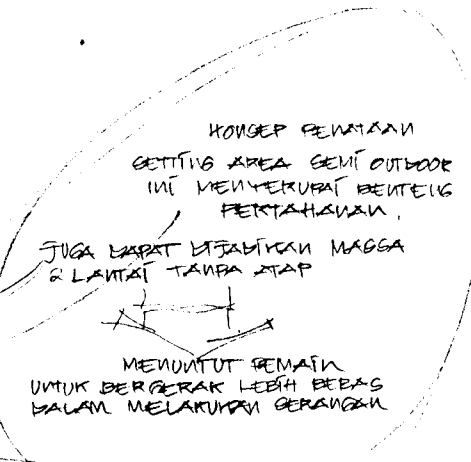 KONSEP PENATAAN
SETTING AREA SEMI OUTDOOR
INI MENYERUPAI BENTENG
PERTAHANAN.
JUGA DAPAT DIJADIKAN MASSA
2 LANTAI TANPA ATAP
MENUNTUT PEMAIN
UNTUK BERGERAK LEBIH BEBAS
DALAM MELAKUKAN SERANGAN